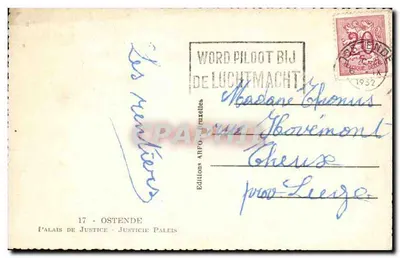 WORD PILOOT BIJ
DE LUCHTMACHT
20
1952
Les rentiers
Madame Thonus
rue Hovémont
Theux
prov Liege
Editions ARFO, Bruxelles
17 - OSTENDE
PALAIS DE JUSTICE - JUSTICIE PALEIS